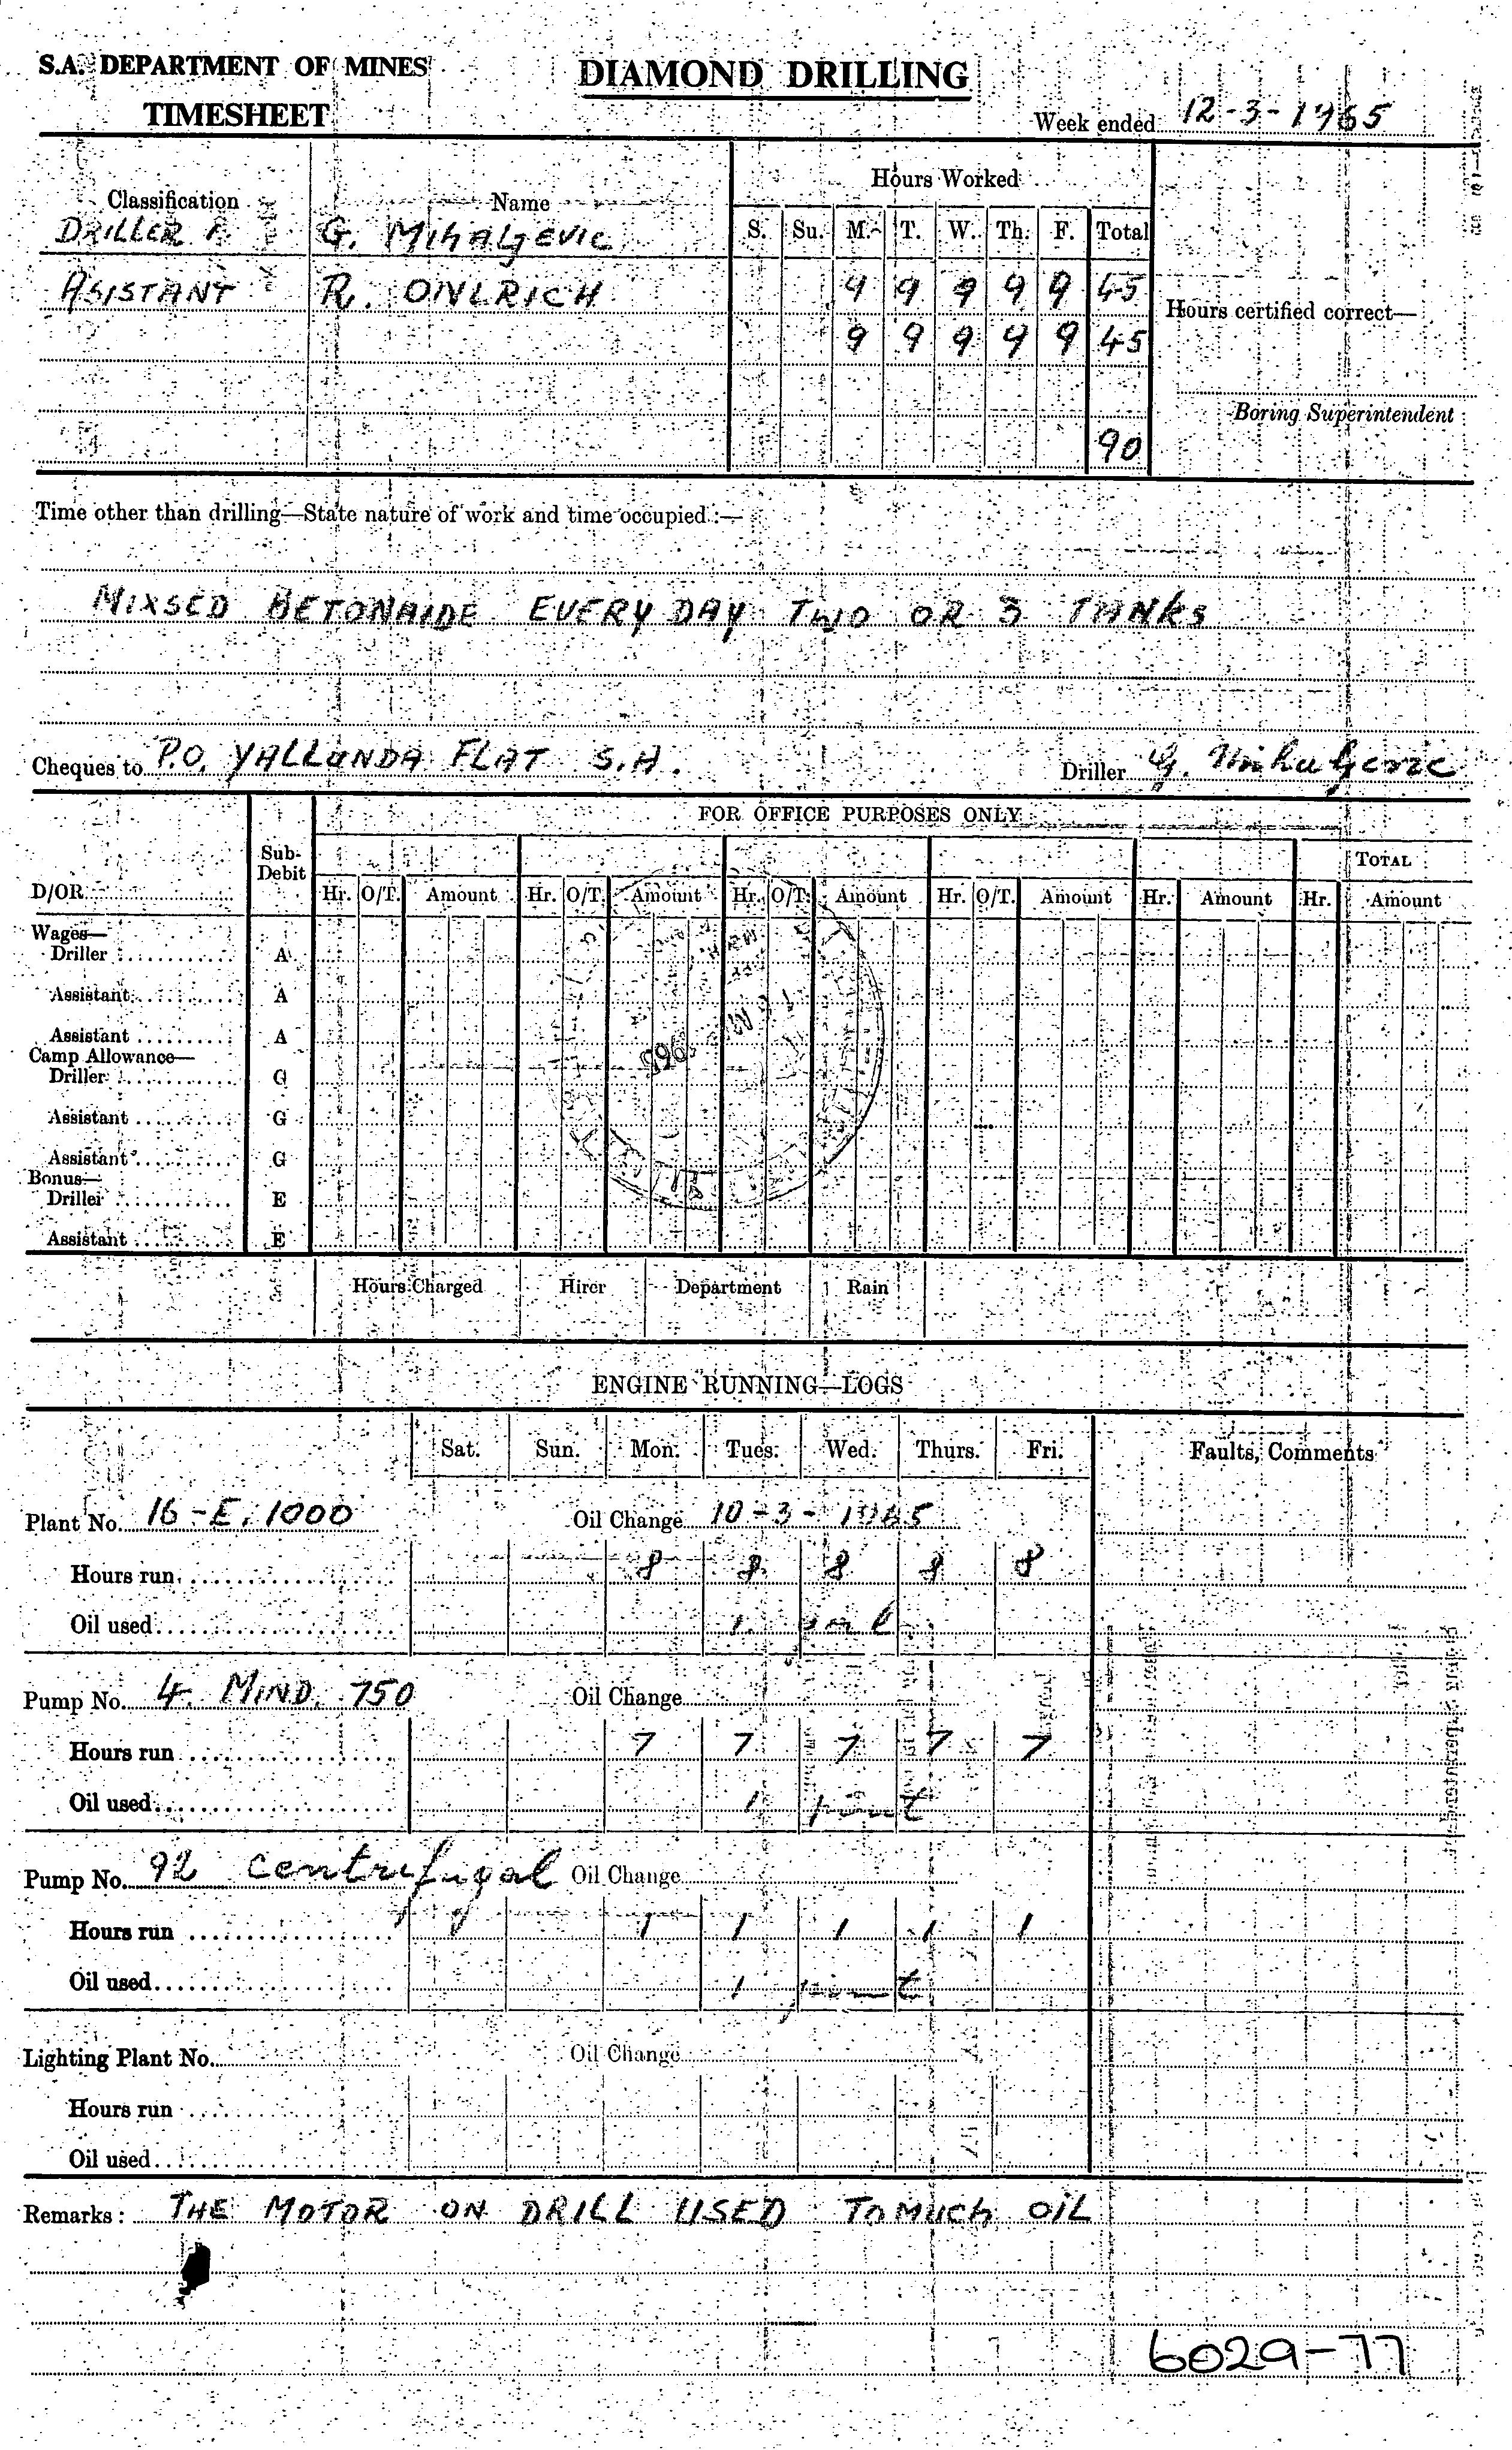 S.A. DEPARTMENT OF MINES
TIMESHEET
DIAMOND DRILLING
Week ended 12-3-1965
Classification Name Hours Worked
S. Su. M. T. W. Th. F. Total
DRILLER G. MIHALJEVIC
ASISTANT R. 9 9 9 9 9 45
Hours certified correct—
9 9 9 9 9 45
Boring Superintendent
90
Time other than drilling—State nature of work and time occupied:—
MIXSED BETONAIDE EVERY DAY TWO OR 3 TANKS
Cheques to P.O. YALLUNDA FLAT S.A.
Driller G. Mihaljevic
FOR OFFICE PURPOSES ONLY
D/OR Sub-Debit TOTAL
Hr. O/T. Amount Hr. O/T. Amount Hr. O/T. Amount Hr. O/T. Amount Hr. Amount Hr. Amount
Wages—
Driller A
Assistant A
Assistant A
Camp Allowance—
Driller G
Assistant G
Assistant G
Bonus—
Driller E
Assistant E
1965
Hours Charged Hirer Department Rain
ENGINE RUNNING—LOGS
Sat. Sun. Mon. Tues. Wed. Thurs. Fri. Faults, Comments
Plant No. 16-E. 1000 Oil Change 10-3-1965
Hours run 8 8 8 8 8
Oil used 1
Pump No. 4. MIND. 750 Oil Change
Hours run 7 7 7 7 7
Oil used 1 pint
Pump No. 92 centrifugal Oil Change
Hours run 1 1 1 1 1
Oil used 1 pint
Lighting Plant No. Oil Change
Hours run
Oil used
Remarks: THE MOTOR ON DRILL USED TO MUCH OIL
6029-77